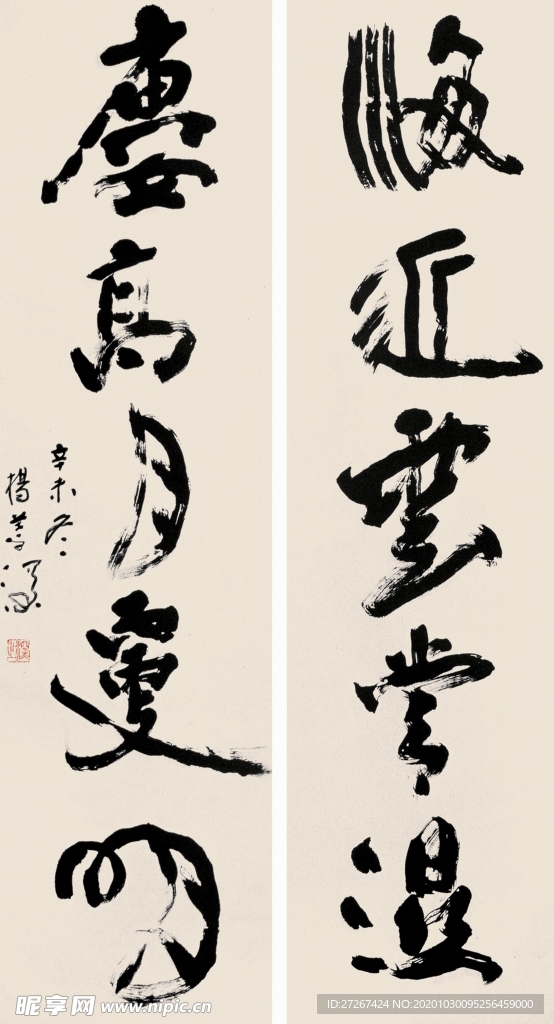 海近雲常湿
廔高月更明
辛未冬
楊善深
昵享网 www.nipic.cn
ID:27267424 NO:20201030095256459000